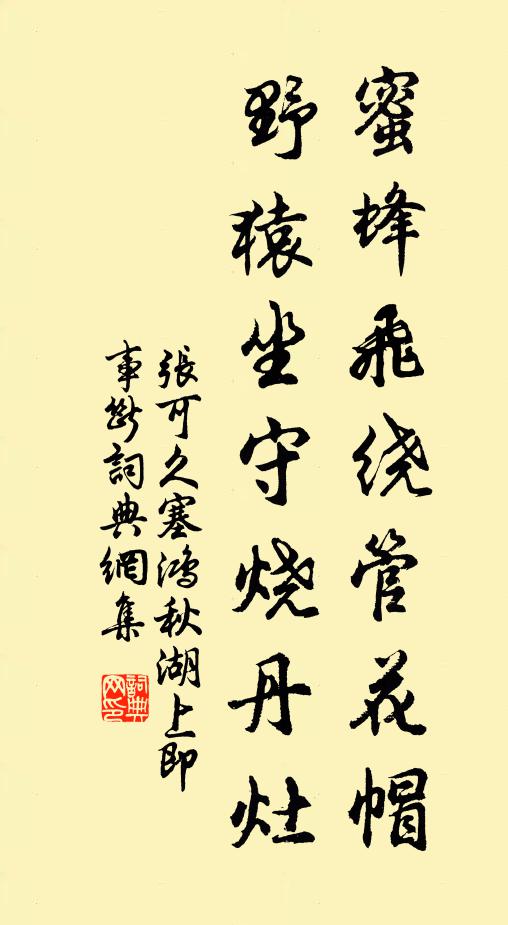 蜜蜂飛绕管花帽
野猿坐守烧丹灶
張可久塞鴻秋湖上即
事影詞典網集
詞典
网印